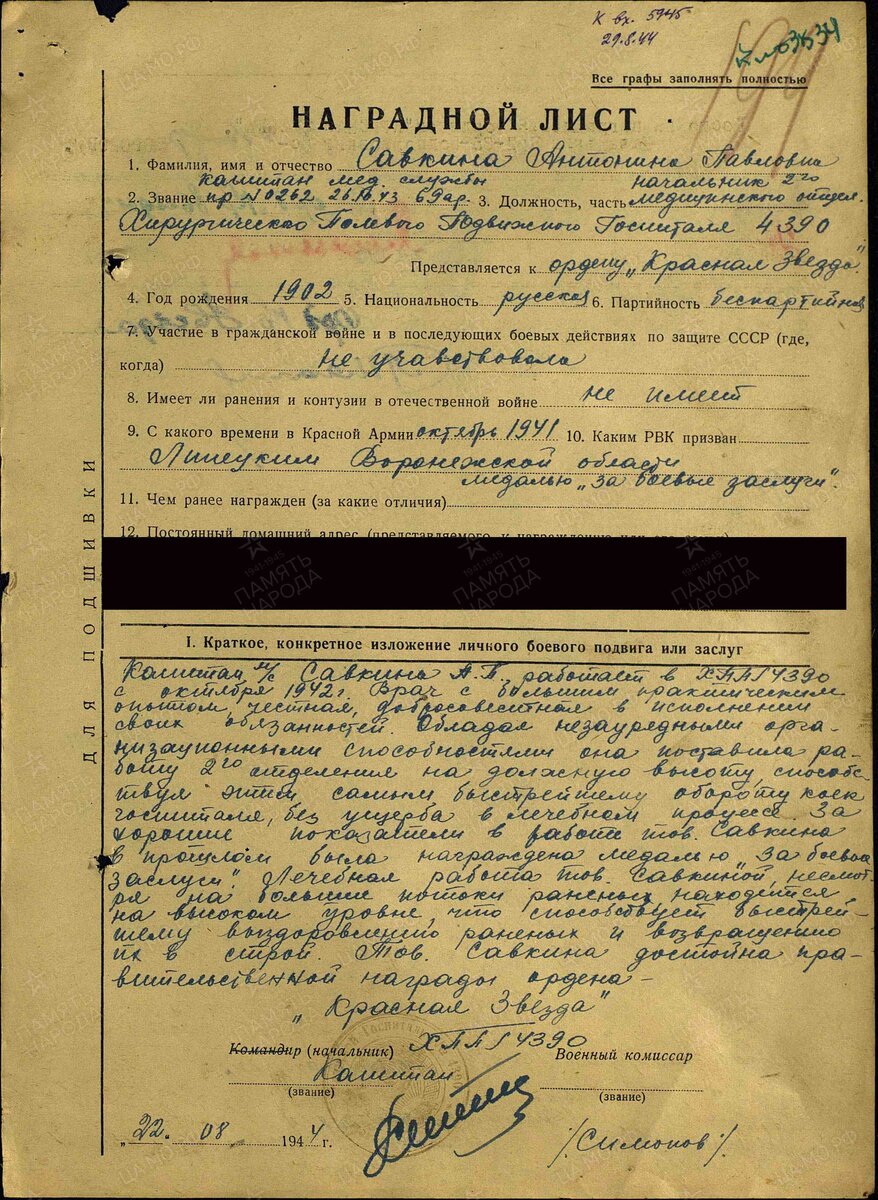 К вх. 5945
29.8.44
Все графы заполнять полностью
НАГРАДНОЙ ЛИСТ
1. Фамилия, имя и отчество Савкина Антонина Павловна
капитан мед. службы начальник 2го
2. Звание пр N0262 26.10.43 69ар. 3. Должность, часть медицинского отдел.
Хирургического Полевого Подвижного Госпиталя 4390
Представляется к ордену „Красная Звезда"
4. Год рождения 1902 5. Национальность русская 6. Партийность беспартийная
7. Участие в гражданской войне и в последующих боевых действиях по защите СССР (где,
когда) не учавствовала
8. Имеет ли ранения и контузии в отечественной войне не имеет
9. С какого времени в Красной Армии октябрь 1941 10. Каким РВК призван
Липецким Воронежской области
медалью „За боевые заслуги".
11. Чем ранее награжден (за какие отличия)
12. Постоянный домашний адрес (представляемого к награждению или его
ДЛЯ ПОДШИВКИ
I. Краткое, конкретное изложение личного боевого подвига или заслуг
Капитан м/с Савкина А.П. работает в ХППГ 4390
с октября 1942 г. Врач с большим практическим
опытом, честная, добросовестная в исполнении
своих обязанностей. Обладая незаурядными орга-
низационными способностями она поставила ра-
боту 2го отделения на должную высоту, способс-
твуя этим самым быстрейшему обороту коек
госпиталя, без ущерба в лечебном процессе. За
хорошие показатели в работе тов. Савкина
в прошлом была награждена медалью „За боевые
заслуги". Лечебная работа тов. Савкиной, несмот-
ря на большие потоки раненых находится
на высоком уровне, что способствует быстрей-
шему выздоровлению раненых и возвращению
их в строй. Тов. Савкина достойна пра-
вительственной награды ордена –
„Красная Звезда"
Командир (начальник) ХППГ 4390 Военный комиссар
Капитан
(звание) (звание)
„22. 08 1944 г. /Симонов/.
ПАМЯТЬ НАРОДА
1941-1945